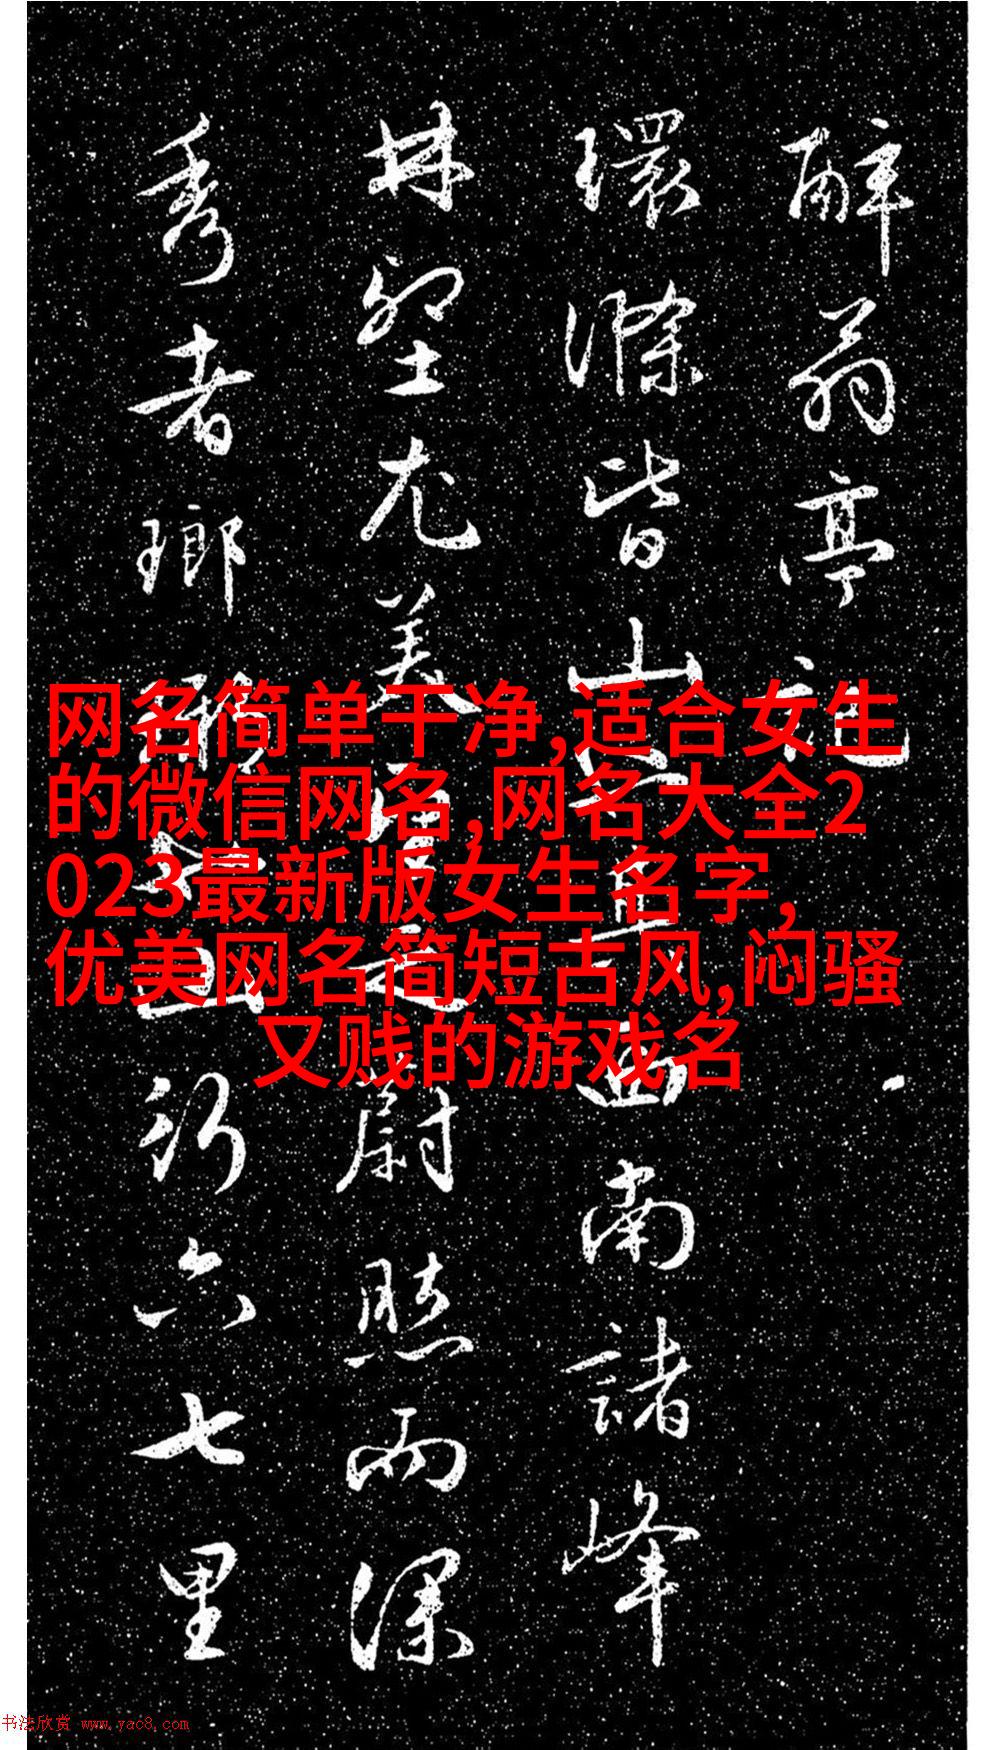 醉翁亭記
環滁皆山也其西南諸峰
林壑尤美望之蔚然而深
秀者瑯琊也山行六七里
网名简单干净,适合女生
的微信网名,网名大全2
023最新版女生名字,
优美网名简短古风,闷骚
又贱的游戏名
书法欣赏 www.yac8.com